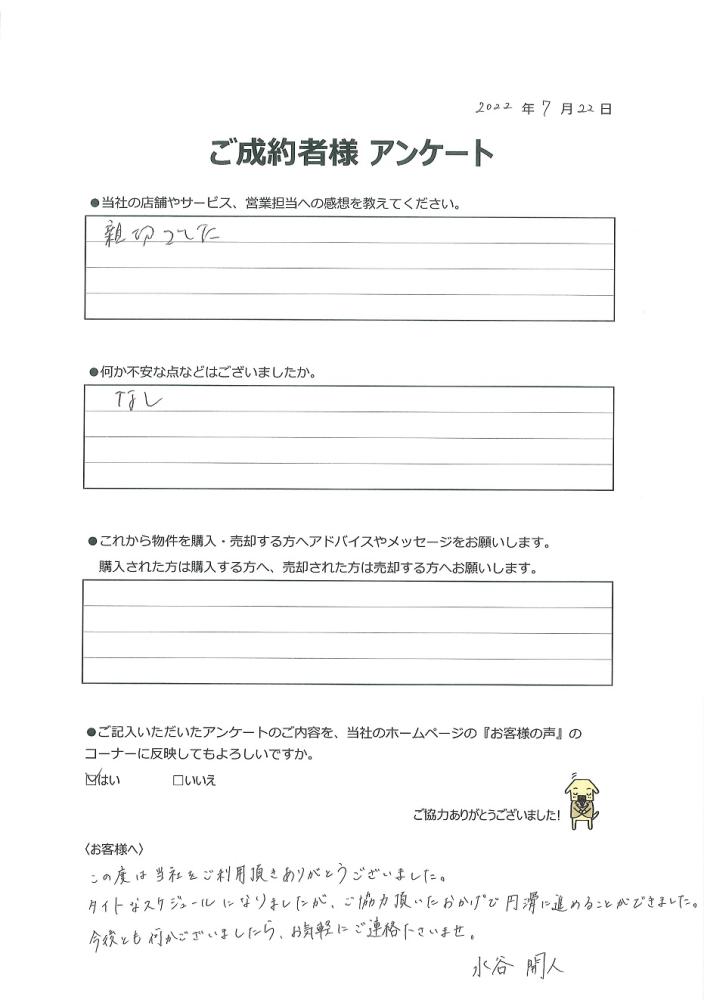 2022 年 7 月 22 日
ご成約者様 アンケート
●当社の店舗やサービス、営業担当への感想を教えてください。
親切でした
●何か不安な点などはございましたか。
なし
●これから物件を購入・売却する方へアドバイスやメッセージをお願いします。
購入された方は購入する方へ、売却された方は売却する方へお願いします。
●ご記入いただいたアンケートのご内容を、当社のホームページの『お客様の声』の
コーナーに反映してもよろしいですか。
☑はい □いいえ
ご協力ありがとうございました!
〈お客様へ〉
この度は当社をご利用頂きありがとうございました。
タイトなスケジュールになりましたが、ご協力頂いたおかげで円滑に進めることができました。
今後とも何かございましたら、お気軽にご連絡下さいませ。
水谷 開人